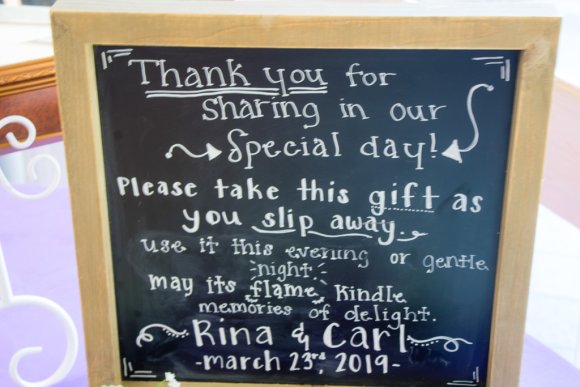 Thank you for
sharing in our
special day!
Please take this gift as
you slip away.
use it this evening or gentle
night.
may its flame kindle
memories of delight.
Rina & Carl
-march 23rd, 2019-